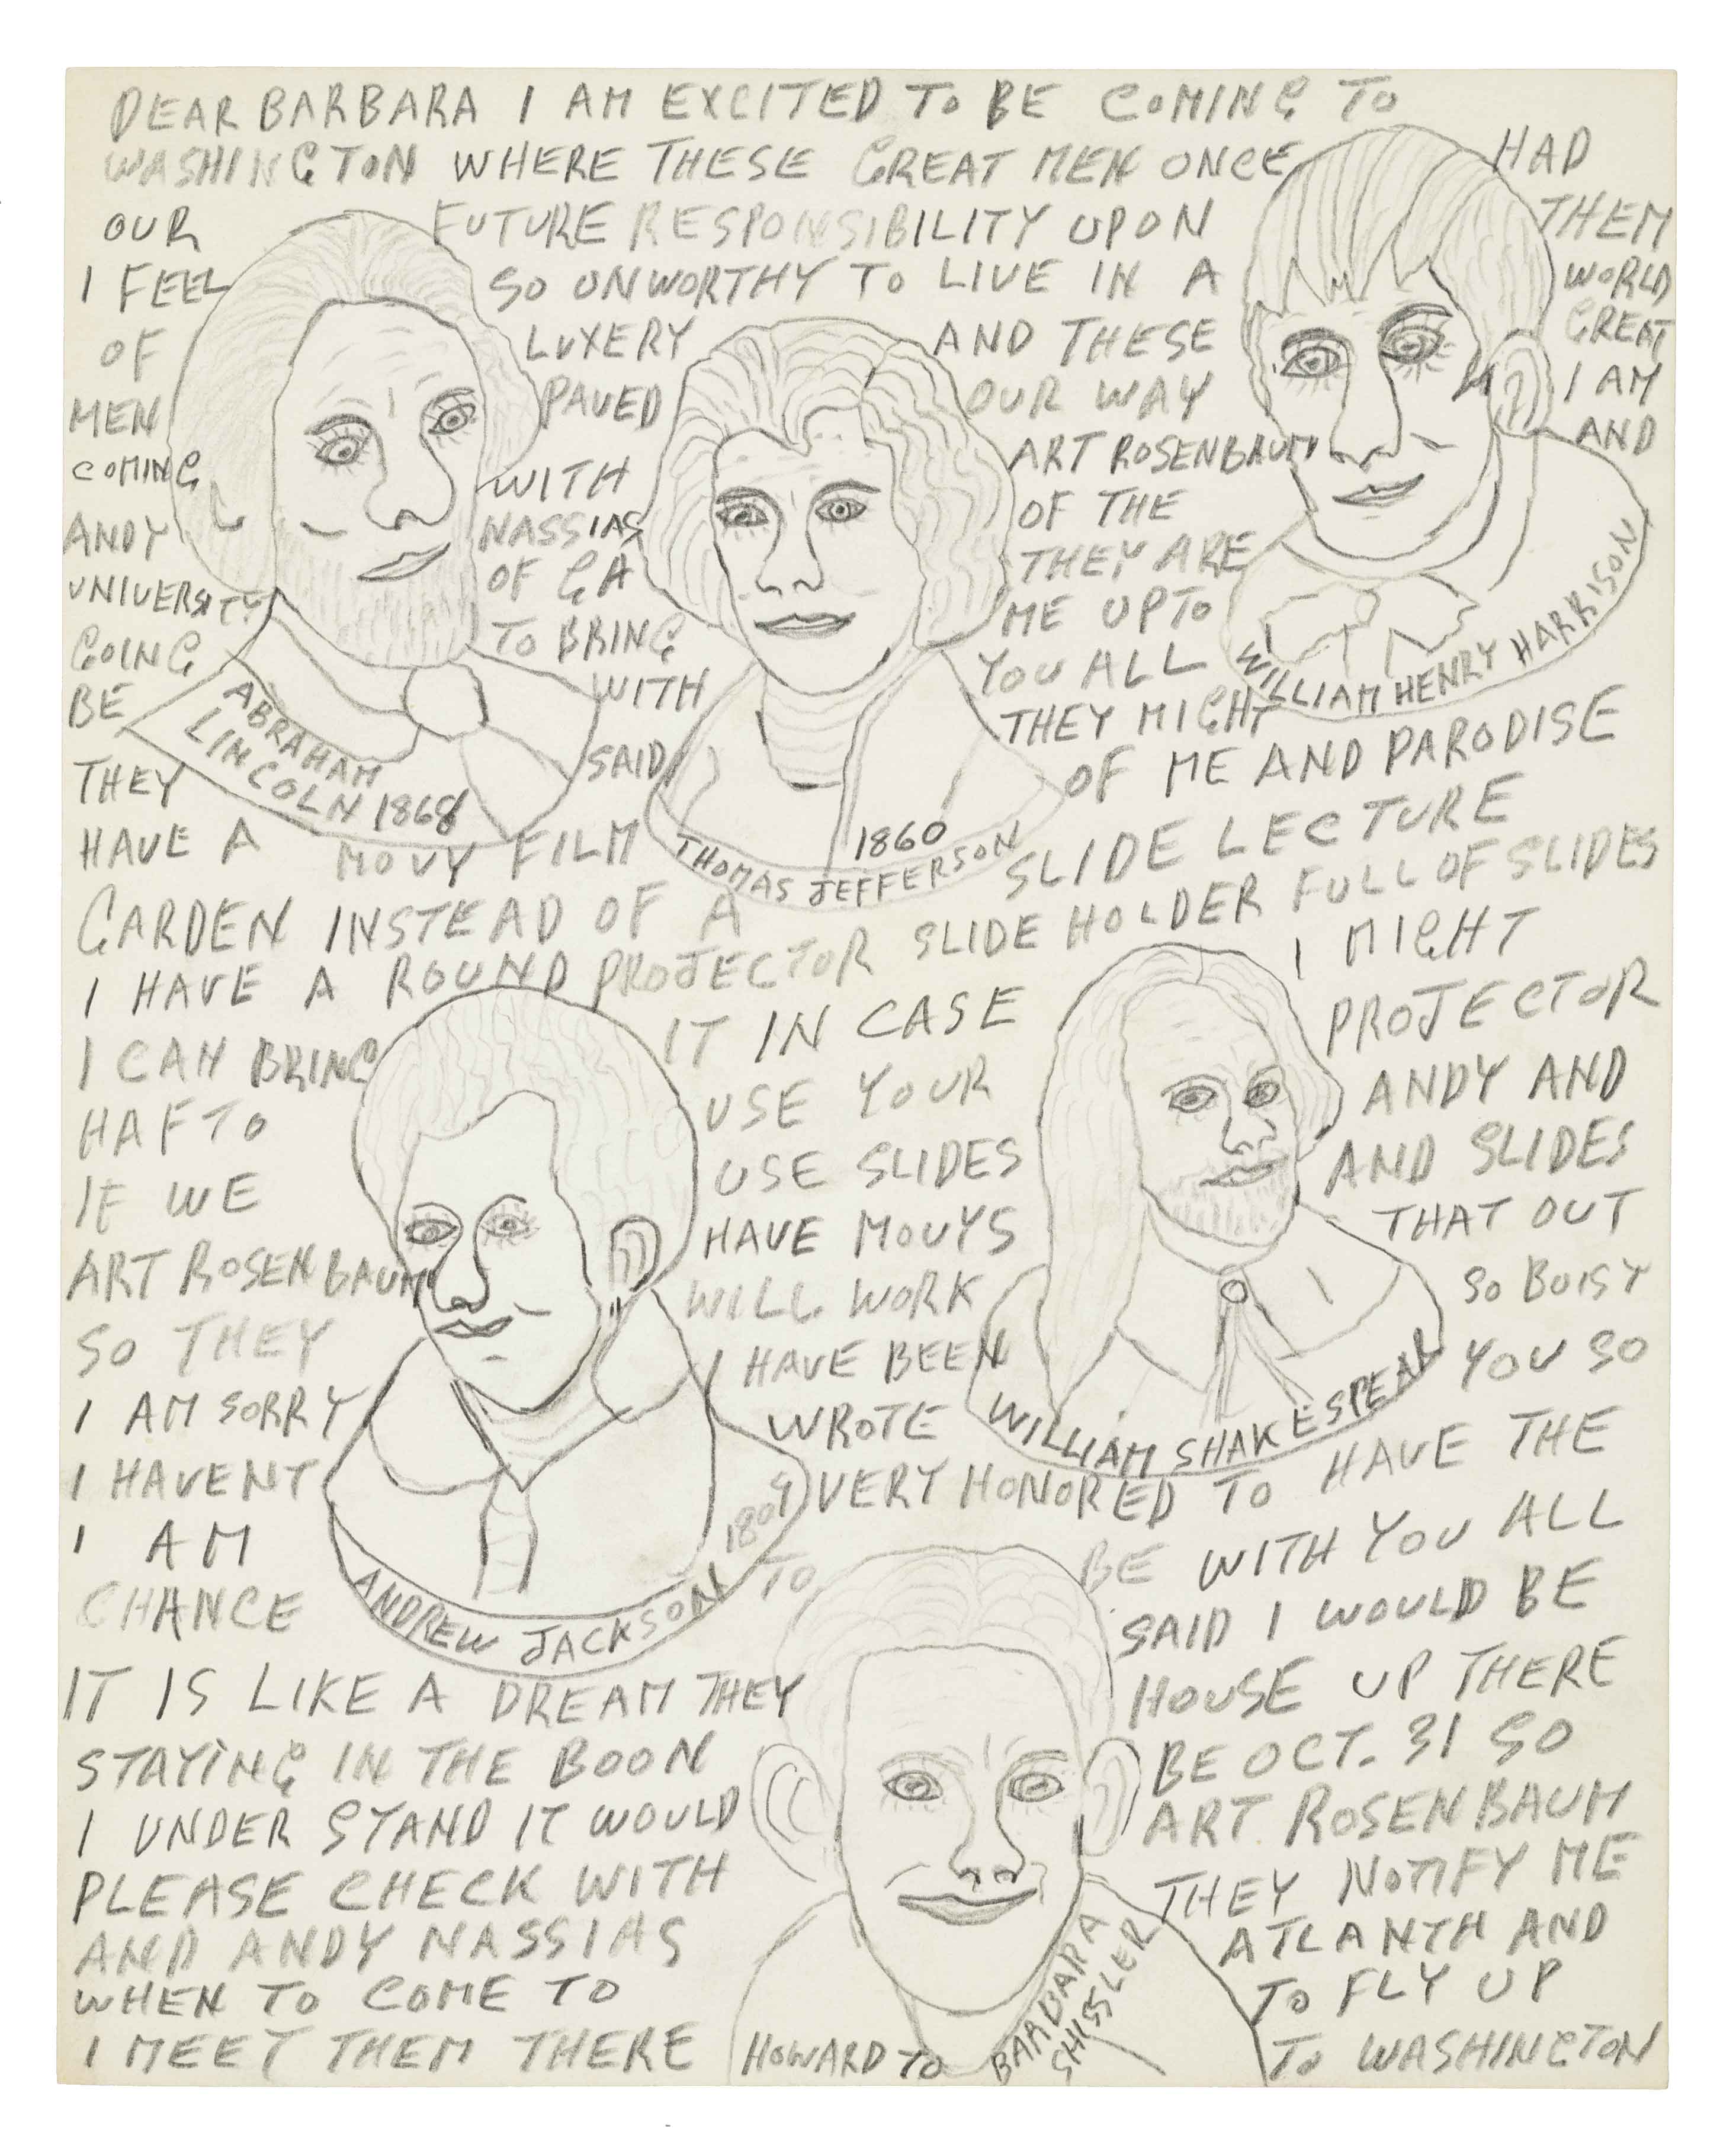 DEAR BARBARA I AM EXCITED TO BE COMING TO
WASHINGTON WHERE THESE GREAT MEN ONCE HAD
OUR FUTURE RESPONSIBILITY UPON THEM
I FEEL SO UNWORTHY TO LIVE IN A WORLD
OF LUXERY AND THESE GREAT
MEN PAVED OUR WAY I AM
COMING WITH ART ROSENBAUM AND
ANDY NASSIAS OF THE
UNIVERSITY OF GA THEY ARE
GOING TO BRING ME UPTO
BE WITH YOU ALL
THEY SAID THEY MIGHT
HAVE A MOVY FILM OF ME AND PARODISE
GARDEN INSTEAD OF A SLIDE LECTURE
I HAVE A ROUND PROJECTOR SLIDE HOLDER FULL OF SLIDES
I CAN BRING IT IN CASE I MIGHT
HAFTO USE YOUR PROJECTOR
IF WE USE SLIDES ANDY AND
ART ROSENBAUM HAVE MOVYS AND SLIDES
SO THEY WILL WORK THAT OUT
I AM SORRY I HAVE BEEN SO BUISY
I HAVENT WROTE YOU SO
I AM VERY HONORED TO HAVE THE
CHANCE TO BE WITH YOU ALL
IT IS LIKE A DREAM THEY SAID I WOULD BE
STAYING IN THE BOON HOUSE UP THERE
I UNDER STAND IT WOULD BE OCT. 31 SO
PLEASE CHECK WITH ART ROSENBAUM
AND ANDY NASSIAS THEY NOTIFY ME
WHEN TO COME TO ATLANTA AND
I MEET THEM THERE TO FLY UP
TO WASHINGTON
HOWARD TO
BARBARA
SHISSLER
ABRAHAM
LINCOLN 1868
1860
THOMAS JEFFERSON
WILLIAM HENRY HARRISON
ANDREW JACKSON 1809
WILLIAM SHAKESPEAR